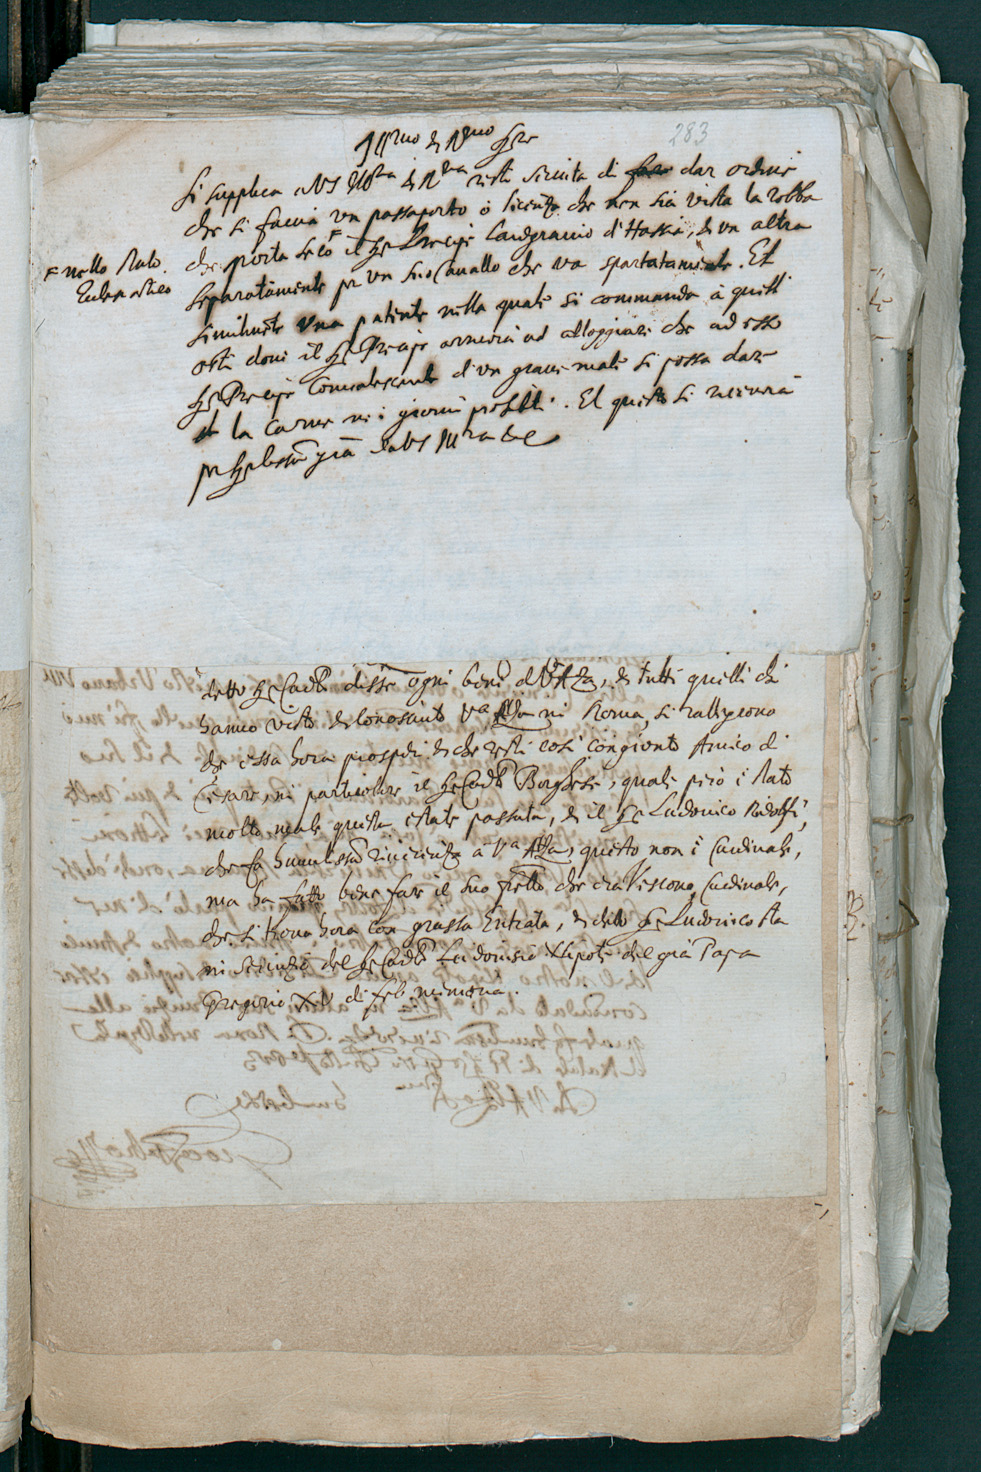 283
Ill.mo & R.mo Sre
Si supplica a VS Ill.ma & R.ma resti servita di dar ordine
che si faccia un passaporto ò licenza che non sia vista la robba
che porta seco il Sr Precipe Landgravio d'Hassia, & un altra
= nello stato
Ecclesiastico
separatamente pr un suo Cavallo che va spartatamente. Et
similmte una patente nella quale si commanda à quelli
osti dove il Sr Precipe arriverà ad alloggiare che ad esso
Sr Precipe Convalescente d'un grave male si possa dare
la Carne ne i giorni prohibiti. Et questo si riceverà
pr gra da VS Ill.ma &c
detto Sr Cardl disse ogni bene di V Alza, & tutti quelli ch
hanno visto & conosciuto Va Alza in Roma, si rallegrono
che essa hora prosperi & che resti così congionto Amico di
Cesare, in particolare il Sr Cardl Borghese, quale però è stato
molto male questa estate passata, & il Sr Ludovico Ridolfi,
che fa humilissa riverenza a Va Alza, questo non è Cardinale,
ma ha fatto bene fare il suo frello, che era Vescovo, Cardinale,
che si trova hora con grassa Entrata, & detto Sr Ludovico sta
in servizio del Sr Cardl Ludovisio Nipote del già Papa
Gregorio XV di fel. memoria.